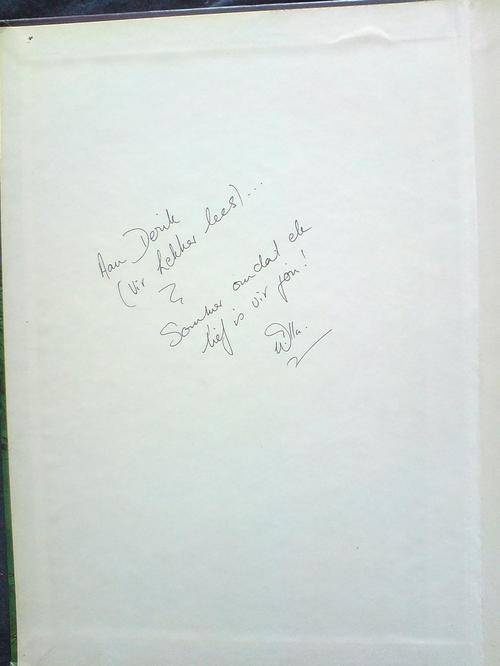 Aan Derik
(Vir Lekker lees)...
&
Sommer omdat ek
lief is vir jou!
Willa.